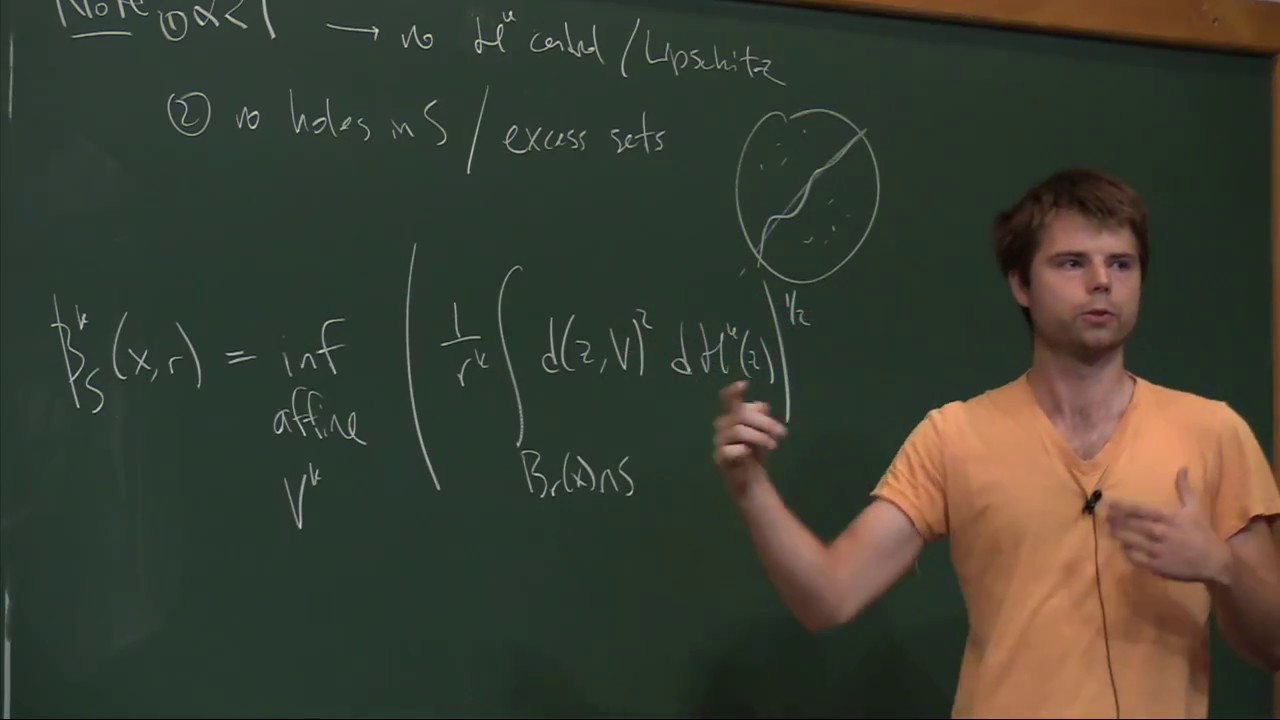 Note ① α<1 → no H^k control / Lipschitz
② no holes in S / excess sets
β^k_S (x,r) = inf affine V^k ( 1/r^k ∫_{B_r(x)∩S} d(z,V)^2 dH^k(z) )^{1/2}